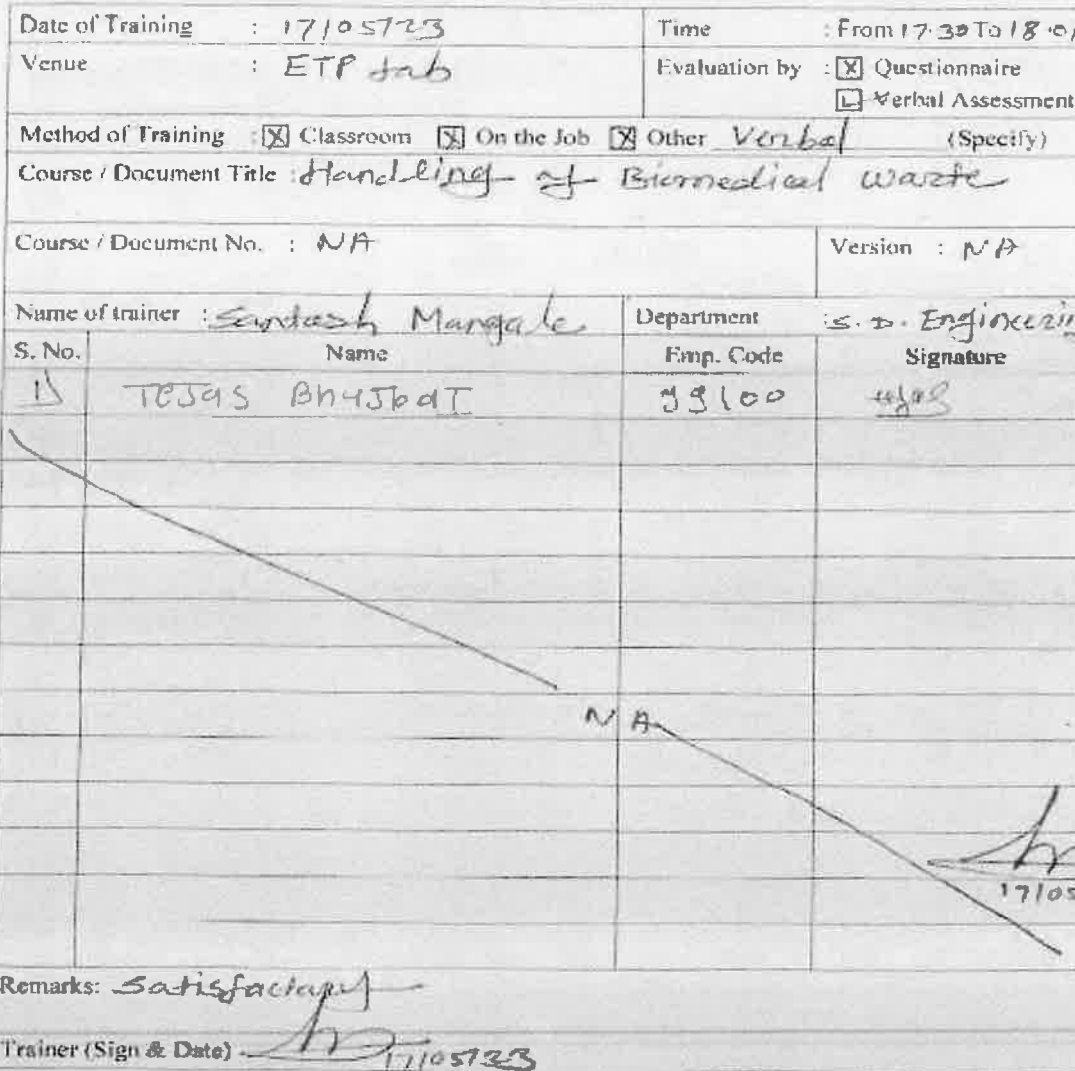 Date of Training : 17/05/23 Time : From 17.30 To 18.0
Venue : ETP Lab Evaluation by : [X] Questionnaire
Verbal Assessment
Method of Training : [X] Classroom [X] On the Job [X] Other Verbal (Specify)
Course / Document Title : Handling of Biomedical waste
Course / Document No. : NA Version : NA
Name of trainer : Santosh Mangale Department : S. D. Engineerin
S. No. Name Emp. Code Signature
1) Tejas Bhujbal 99100 Tejas
NA
17/05
Remarks: Satisfactory
Trainer (Sign & Date) 17/05/23